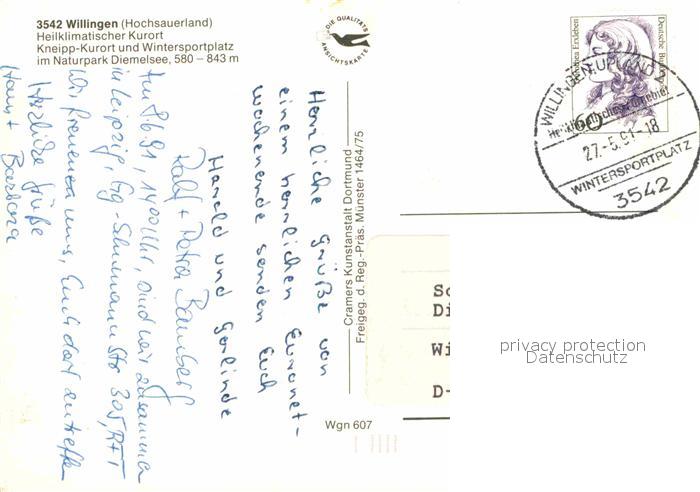 3542 Willingen (Hochsauerland)
Heilklimatischer Kurort
Kneipp-Kurort und Wintersportplatz
im Naturpark Diemelsee, 580 – 843 m
DIE QUALITÄTS
ANSICHTSKARTE
Herzliche Grüße von
einem herrlichen Euronet-
wochenende senden Euch
Harald und Gerlinde
Ralf + Petra
Am 8.6.91, 14.00 Uhr, sind wir zusammen
in Leipzig, Str. 305,
Wir freuen uns, Euch dort zu treffen
Herzliche Grüße
Hans + Barbara
Cramers Kunstanstalt Dortmund
Freigeg. d. Reg.-Präs. Münster 1464/75
Wgn 607
Deutsche
60
WILLINGEN, UPLAND
Heilklimatischer
27.-5.91-18
WINTERSPORTPLATZ
3542
Sc
Di
Wi
D-
privacy protection
Datenschutz